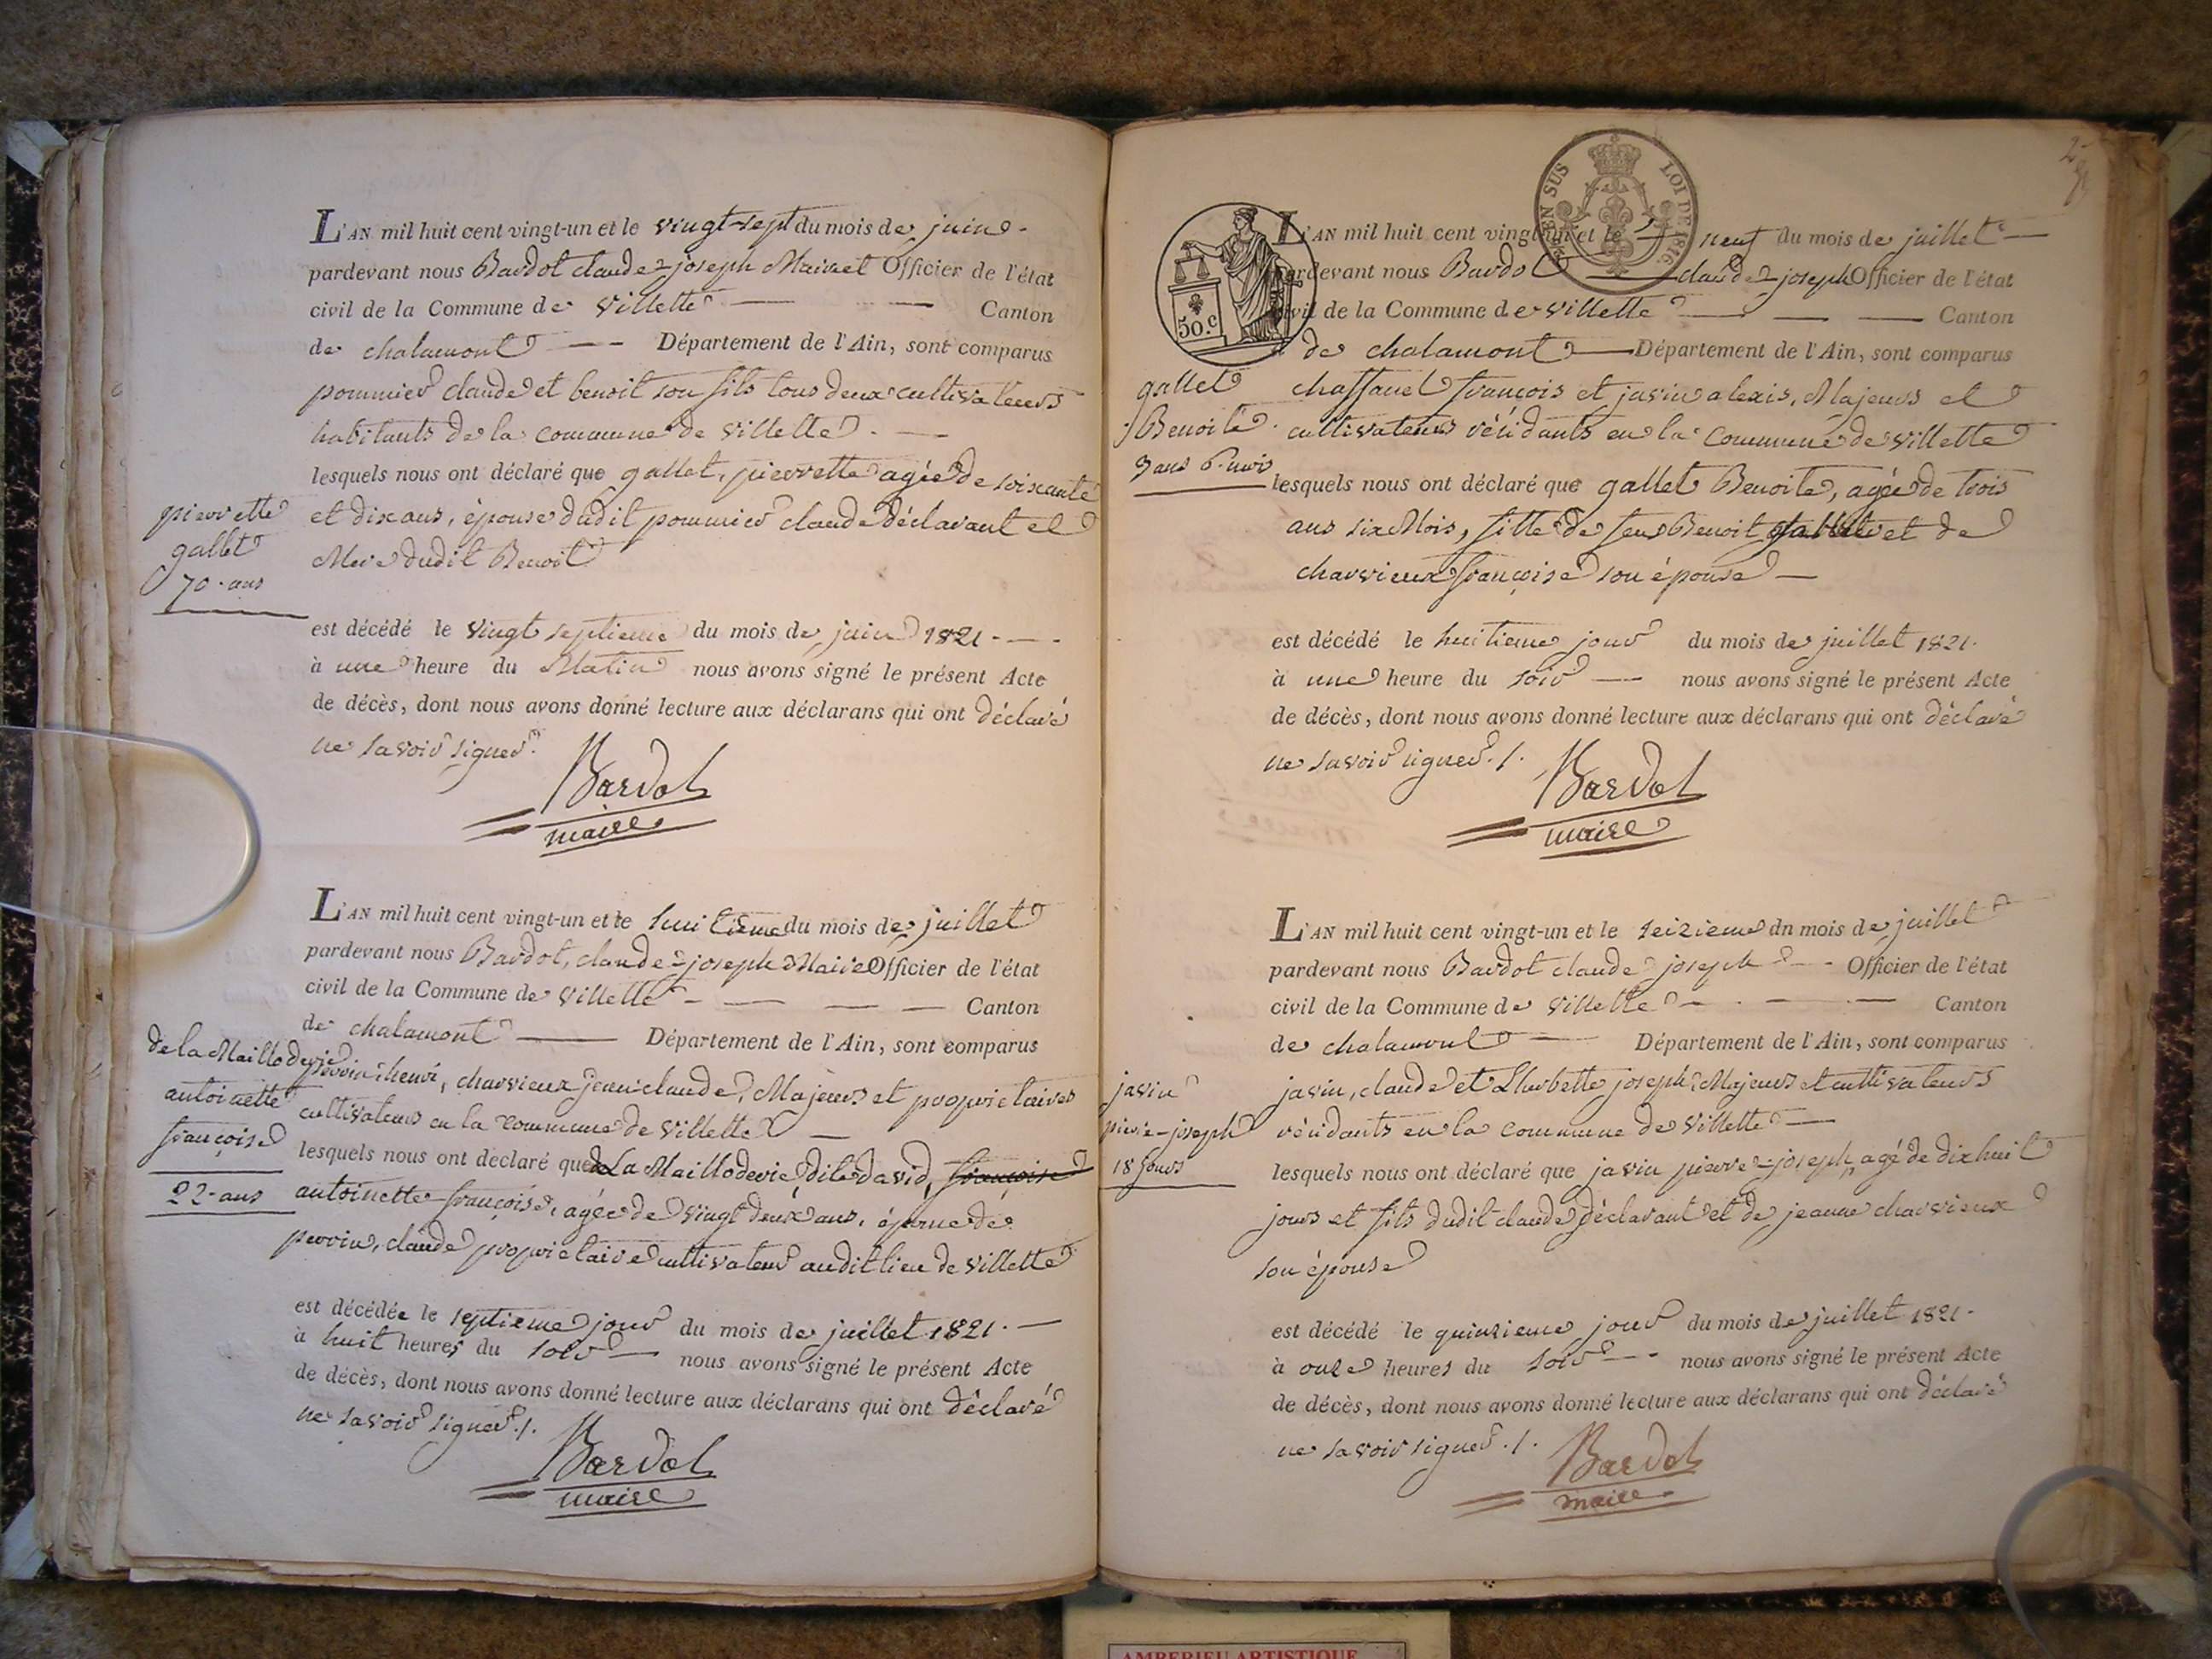 L'AN mil huit cent vingt-un et le vingt-sept du mois de juin
pardevant nous Bardot claude-joseph Maire et Officier de l'état
civil de la Commune de Villette Canton
de chalamont Département de l'Ain, sont comparus
pommier claude et benoit son fils tous deux cultivateurs
habitants de la commune de Villette.
lesquels nous ont déclaré que gallet, pierrette agée de soixante
et dix ans, épouse dudit pommier claude déclarant et
Mere dudit Benoit
pierrette
gallet
70 ans
est décédé le vingt septieme du mois de juin 1821
à une heure du Matin nous avons signé le présent Acte
de décès, dont nous avons donné lecture aux déclarans qui ont déclaré
ne savoir signer.
Bardot
maire
L'AN mil huit cent vingt-un et le huitieme du mois de juillet
pardevant nous Bardot, claude-joseph Maire Officier de l'état
civil de la Commune de Villette Canton
de chalamont Département de l'Ain, sont comparus
perrin henri, charvieux jean-claude, Majeurs et proprietaires
cultivateurs en la commune de Villette
lesquels nous ont déclaré que de La Mailloderie, dite david, françoise
antoinette françoise, agée de vingt deux ans, épouse de
perrin, claude proprietaire cultivateur audit lieu de Villette
de la Mailloderie
antoinette
françoise
22 ans
est décédée le septieme jour du mois de juillet 1821.
à huit heures du soir nous avons signé le présent Acte
de décès, dont nous avons donné lecture aux déclarans qui ont déclaré
ne savoir signer./.
Bardot
maire
EN SUS LOI DE 1816
50.c
L'AN mil huit cent vingt-un et le neuf du mois de juillet
pardevant nous Bardot claude-joseph Officier de l'état
civil de la Commune de Villette Canton
de chalamont Département de l'Ain, sont comparus
chassanel françois et javin alexis, Majeurs et
cultivateurs résidants en la commune de Villette
lesquels nous ont déclaré que gallet Benoite, agée de trois
ans six Mois, fille de feu Benoit gallet et de
charvieux françoise son épouse
gallet
Benoite
3 ans 6 mois
est décédé le huitieme jour du mois de juillet 1821.
à une heure du soir nous avons signé le présent Acte
de décès, dont nous avons donné lecture aux déclarans qui ont déclaré
ne savoir signer./.
Bardot
maire
L'AN mil huit cent vingt-un et le seizieme du mois de juillet
pardevant nous Bardot claude joseph Officier de l'état
civil de la Commune de Villette Canton
de chalamont Département de l'Ain, sont comparus
javin, claude et Lhurbette joseph Majeurs et cultivateurs
résidants en la commune de Villette
lesquels nous ont déclaré que javin pierre-joseph, agé de dix huit
jours et fils dudit claude déclarant et de jeanne charvieux
son épouse
javin
pierre-joseph
18 jours
est décédé le quinzieme jour du mois de juillet 1821.
à onze heures du soir nous avons signé le présent Acte
de décès, dont nous avons donné lecture aux déclarans qui ont déclaré
ne savoir signer./.
Bardot
maire
AMBERIEU ARTISTIQUE